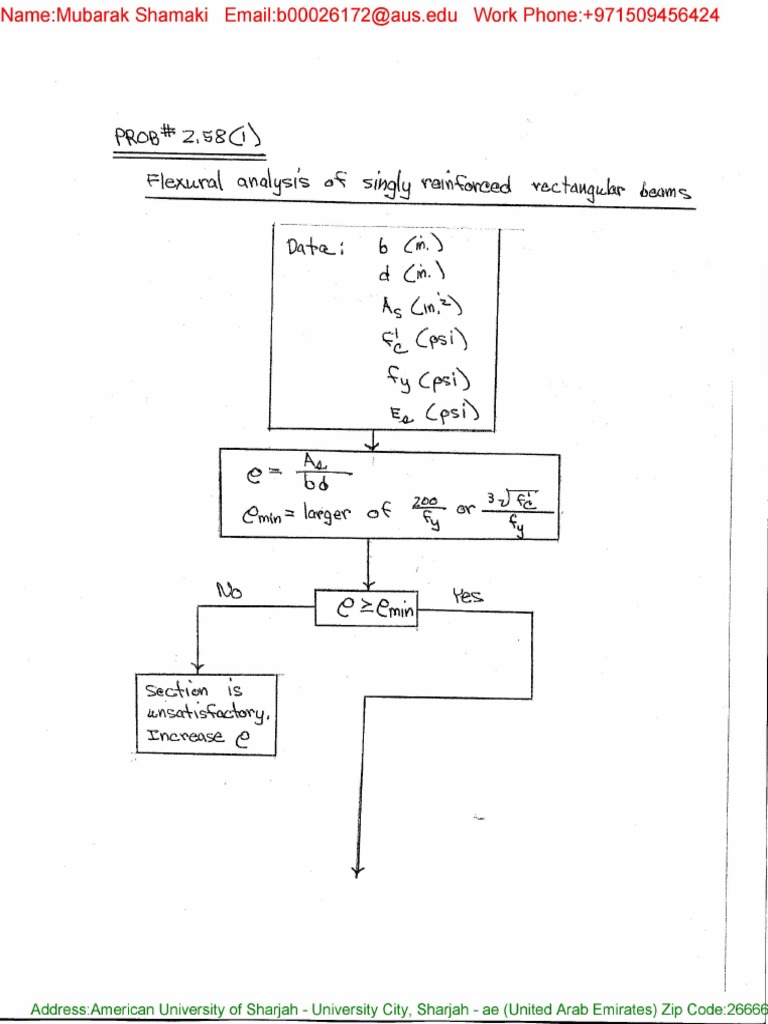 Name:Mubarak Shamaki Email:b00026172@aus.edu Work Phone:+971509456424
PROB# 2.58(1)
Flexural analysis of singly reinforced rectangular beams
Data: b (in.)
d (in.)
As (in.²)
f'c (psi)
fy (psi)
Es (psi)
ρ = As/bd
ρmin = larger of 200/fy or 3√f'c/fy
No
Yes
ρ ≥ ρmin
Section is
unsatisfactory.
Increase ρ
Address:American University of Sharjah - University City, Sharjah - ae (United Arab Emirates) Zip Code:26666